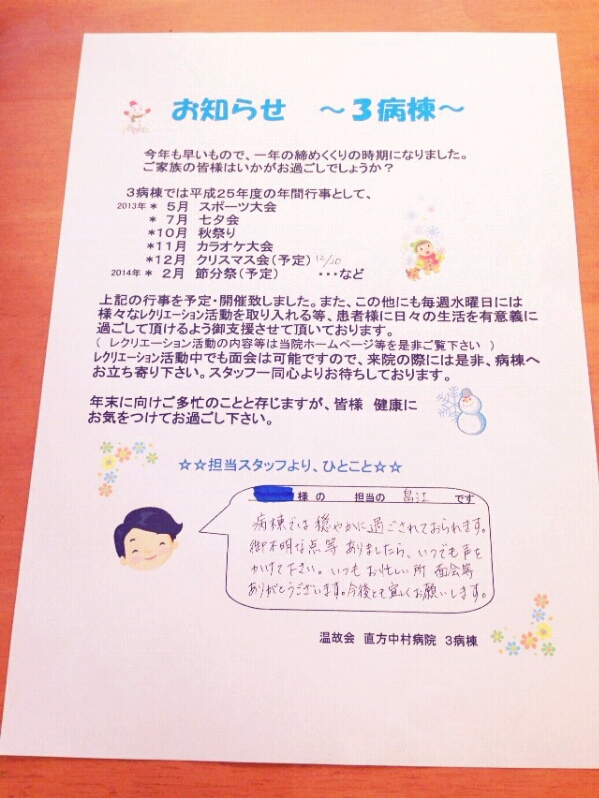 お知らせ ～３病棟～
今年も早いもので、一年の締めくくりの時期になりました。
ご家族の皆様はいかがお過ごしでしょうか？
３病棟では平成２５年度の年間行事として、
2013年 * ５月 スポーツ大会
* ７月 七夕会
*１０月 秋祭り
*１１月 カラオケ大会
*１２月 クリスマス会（予定） 12/20
2014年 * ２月 節分祭（予定） ･･･など
上記の行事を予定・開催致しました。また、この他にも毎週水曜日には
様々なﾚｸﾘｴｰｼｮﾝ活動を取り入れる等、患者様に日々の生活を有意義に
過ごして頂けるよう御支援させて頂いております。
（ レクリエーション活動の内容等は当院ホームページ等を是非ご覧下さい ）
ﾚｸﾘｴｰｼｮﾝ活動中でも面会は可能ですので、来院の際には是非、病棟へ
お立ち寄り下さい。スタッフ一同心よりお待ちしております。
年末に向けご多忙のことと存じますが、皆様 健康に
お気をつけてお過ごし下さい。
☆☆担当スタッフより、ひとこと☆☆
様の 担当の 畠江 です
病棟では穏やかに過ごされておられます。
御不明な点等ありましたら、いつでも声を
かけて下さい。いつもお忙しい所 面会等
ありがとうございます。今後とも宜しくお願いします。
温故会 直方中村病院 ３病棟